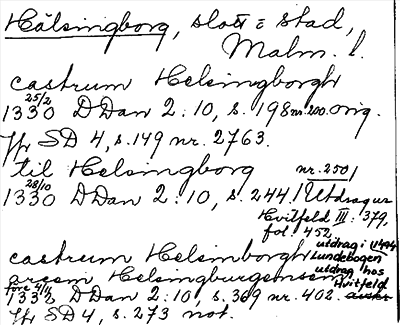 Hälsingborg, slott o stad,
Malm. l.
castrum Helsingborgh
25/2
1330 DDan 2:10, s. 198 nr. 200. orig.
Jfr SD 4, s. 149 nr. 2763.
til Helsingborg nr. 250/
28/10
1330 DDan 2:10, s. 244/ Utdrag ur
Hvitfeld III: 379,
fol. 452
castrum Helsimborgh utdrag i Lundebogen 1494
arcem Helsingburgensem utdrag hos Hvitfeld
före 4/11
1332 DDan 2:10, s. 369 nr. 402.
Jfr SD 4, s. 273 not.